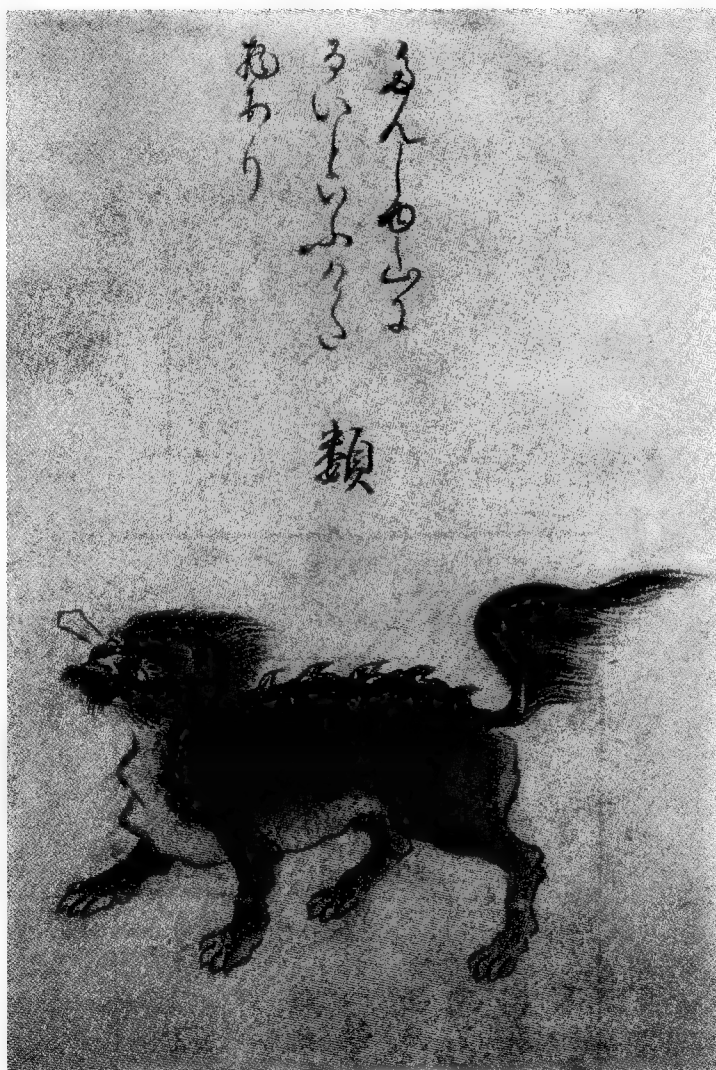 たんしゆ山に
るいといふけた
物あり
類